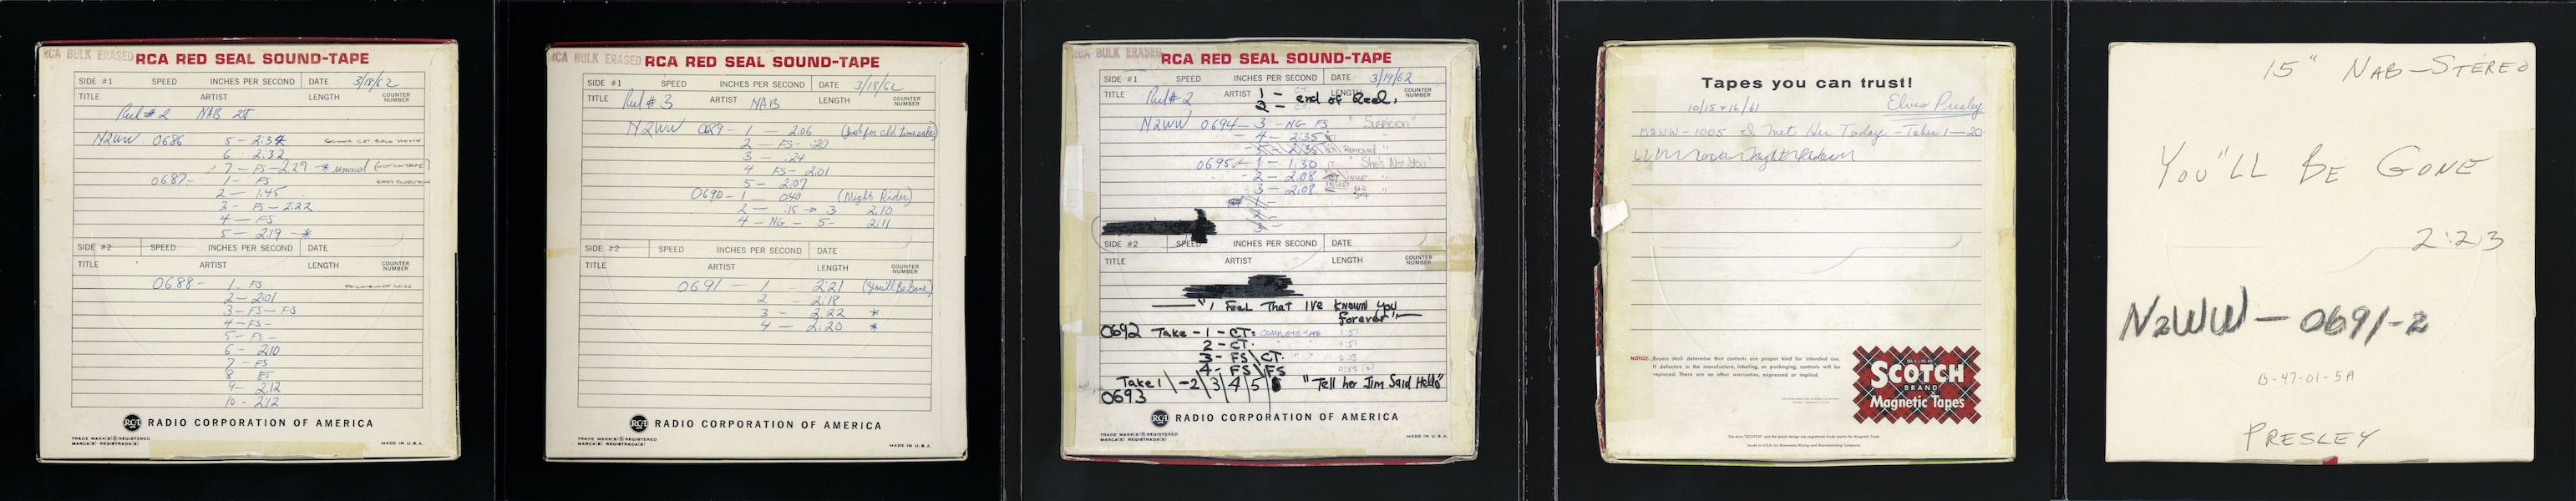 RCA BULK ERASED RCA RED SEAL SOUND-TAPE
SIDE #1 SPEED INCHES PER SECOND DATE 3/18/62
TITLE ARTIST LENGTH COUNTER NUMBER
Reel #2 NAB
N2WW 0686 5 - 2:34
6 2:32
7 - FS - 2.27 -*
0687- 1 - FS EASY QUESTION
2 - 1:45
3 - FS - 2:22
4 - FS
5 - 2:19 -*
SIDE #2 SPEED INCHES PER SECOND DATE
TITLE ARTIST LENGTH COUNTER NUMBER
0688- 1 - FS
2 - 2:01
3 - FS - FS
4 - FS -
5 - FS -
6 - 2:10
7 - FS
8
9 - 2:12
10 - 2:12
RCA RADIO CORPORATION OF AMERICA
TRADE MARK(S) ® REGISTERED
MARCA(S) REGISTRADA(S)
MADE IN U.S.A.
RCA BULK ERASED RCA RED SEAL SOUND-TAPE
SIDE #1 SPEED INCHES PER SECOND DATE 3/18/62
TITLE Reel #3 ARTIST NAB LENGTH COUNTER NUMBER
N2WW 0689 - 1 - 2.06 (Just for old time sake)
2 - FS - :20
3 - :24
4 FS - 2:01
5 - 2:07
0690 - 1 - (Night Rider)
2 - :15 → 3 2:10
4 - NG - 5 - 2:11
SIDE #2 SPEED INCHES PER SECOND DATE
TITLE ARTIST LENGTH COUNTER NUMBER
0691 - 1 2:21 (You'll Be Gone)
2 - 2:18
3 - 2:22 *
4 - 2:20 *
RCA RADIO CORPORATION OF AMERICA
TRADE MARK(S) ® REGISTERED
MARCA(S) REGISTRADA(S)
MADE IN U.S.A.
RCA BULK ERASED RCA RED SEAL SOUND-TAPE
SIDE #1 SPEED INCHES PER SECOND DATE 3/19/62
TITLE Reel #2 ARTIST 1 - CT. LENGTH COUNTER NUMBER
2 - end of Reel.
N2WW 0694 - 3 - NG FS "Suspicion"
- 4 - 2:35 "
Removed "
0695 - 1 - 1:30 "She's Not You"
- 2 - 2.08 "
3 - 2:08 "
SIDE #2 SPEED INCHES PER SECOND DATE
TITLE ARTIST LENGTH COUNTER NUMBER
"I Feel That I've KNOWN You forever"
0692 Take - 1 - CT: COMPLETE TAKE 1:51
2 - CT. 1:51
3 - FS\CT. 2:13
4 - FS\FS
Take 1\-2\3\4\5 "Tell her Jim Said Hello"
0693
RCA RADIO CORPORATION OF AMERICA
TRADE MARK(S) ® REGISTERED
MARCA(S) REGISTRADA(S)
MADE IN U.S.A.
Tapes you can trust!
10/15+16/61 Elvis Presley
M2WW-1005 I Met Her Today - Takes 1-20
Night Rider
NOTICE: Buyers shall determine that contents are proper kind for intended use.
If defective in the manufacture, labeling, or packaging, contents will be
replaced. There are no other warranties, expressed or implied.
SCOTCH
BRAND
Magnetic Tapes
The term "SCOTCH" and the plaid design are registered trade marks for Magnetic Tape
made in U.S.A. by Minnesota Mining and Manufacturing Company
15" NAB-STEREO
YOU'LL BE GONE
2:23
N2WW-0691-2
B-47-01-5A
PRESLEY